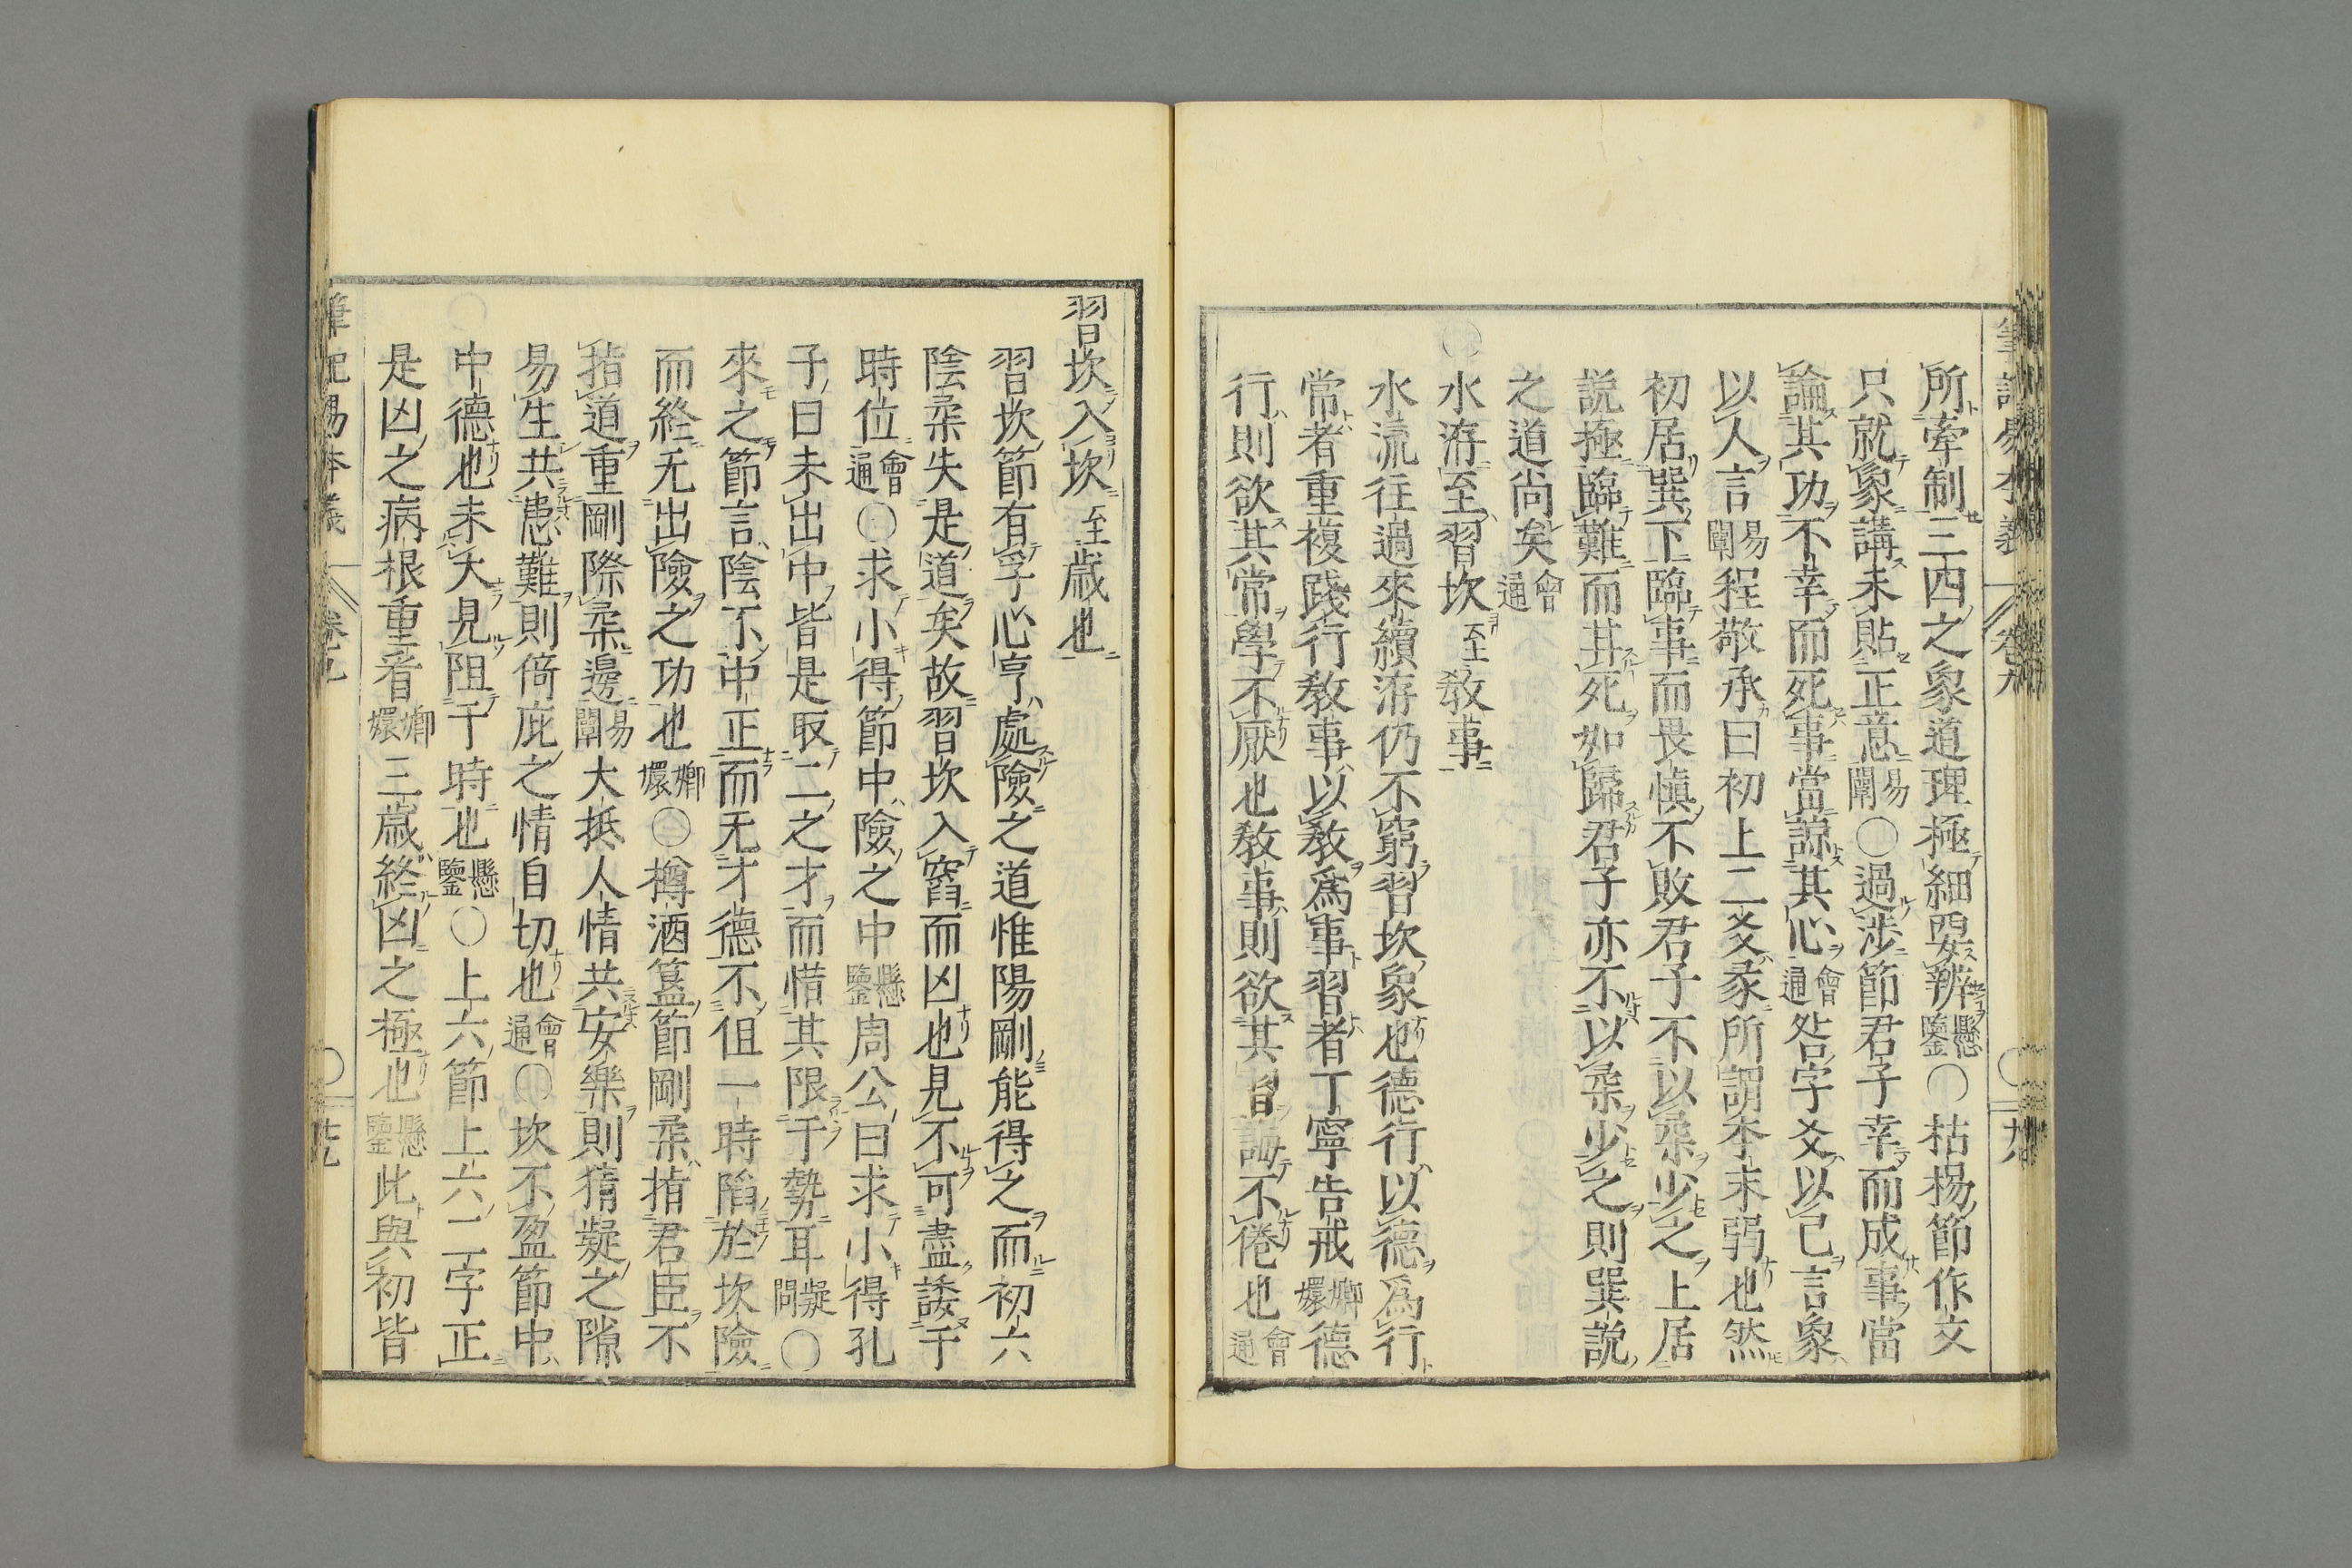 筆記易本義　卷九　〇　廿九
所牽制三四之象道理極細要辨懸鑒〇枯楊節作文
只就象講未貼正意易闡〇過涉節君子幸而成事當
論其功不幸而死事當諒其心會通咎字爻以己言象
以人言易闡程敬承曰初上二爻彖所謂本末弱也然
初居巽下臨事而畏愼不敗君子不以柔少之上居
説極臨難而其死如歸君子亦不以柔少之則巽説
之道尚矣會通
〇水洊至習坎至敎事
水流往過來續洊仍不窮習坎象也德行以德爲行
常者重複踐行敎事以敎爲事習者丁寧告戒嫏嬛德
行則欲其常學不厭也敎事則欲其習誨不倦也會通
習坎入坎至歲也
習坎節有孚心亨處險之道惟陽剛能得之而初六
陰柔失是道矣故習坎入窞而凶也見不可盡諉于
時位會通〇求小得節中險之中懸鑒周公曰求小得孔
子曰未出中皆是取二之才而惜其限于勢耳疑問〇
來之節言陰不中正而无才德不但一時陷於坎險
而終无出險之功也嫏嬛〇樽酒簋節剛柔指君臣不
指道重剛際柔邊易闡大抵人情共安樂則猜疑之隙
易生共患難則倚庇之情自切也會通〇坎不盈節中
中德也未大見阻于時也懸鑒〇上六節上六二字正
是凶之病根重看嫏嬛三歲終凶之極也懸鑒此與初皆
筆記易本義　卷九　〇　廿九